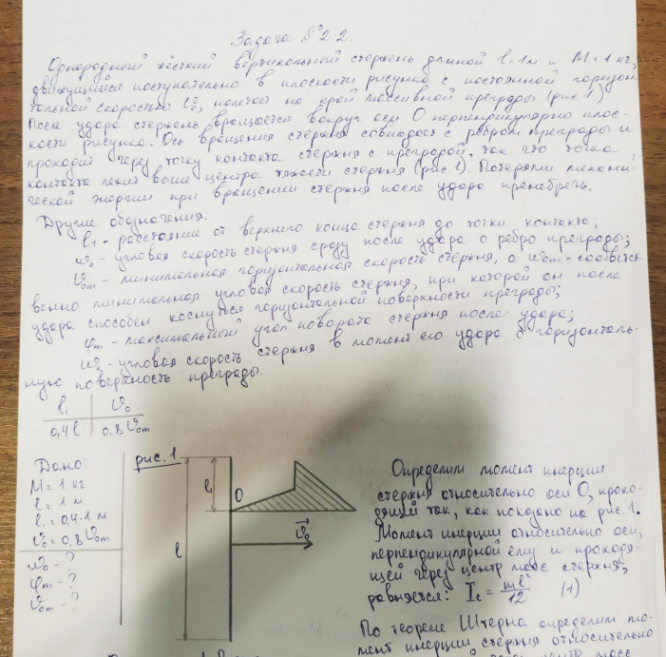 Задача №22.
Однородный жёсткий вертикальный стержень длиной l = 1м и M = 1 кг,
движущийся поступательно в плоскости рисунка с постоянной горизон
тальной скоростью V₀, налетает на край массивной преграды (рис. 1)
После удара стержень вращается вокруг оси О перпендикулярно плос-
кости рисунка. Ось вращения стержня совпадает с ребром преграды и
проходит через точку контакта стержня с преградой, так что точка
контакта лежит выше центра тяжести стержня (рис. 1). Потерями механи-
ческой энергии при вращении стержня после удара пренебречь.
Другие обозначения:
l₁ - расстояние от верхнего конца стержня до точки контакта;
ω₀ - угловая скорость стержня сразу после удара о ребро преграды;
V₀m - минимальная горизонтальная скорость стержня, а ω₀m - соответст
венно минимальная угловая скорость стержня, при которой он после
удара способен коснуться горизонтальной поверхности преграды;
φm - максимальный угол поворота стержня после удара;
угловая скорость стержня в момент его удара с горизонталь-
ную поверхность преграды.
l₁ V₀
0,4l 0,8 V₀m
Дано:
M = 1 кг
l = 1 м
l₁ = 0,4·1 м
V₀ = 0,8 V₀m
ω₀ - ?
φm - ?
V₀m - ?
рис. 1
l₁
O
l
V₀
Определим момент инерции
стержня относительно оси О, прохо-
дящей так, как показано на рис. 1.
Момент инерции относительно оси,
перпендикулярной ему и проходя-
щей через центр масс стержня,
равняется: I_c = ml²/12 (1)
По теореме Штерна определим мо-
мент инерции стержня относительно
масс